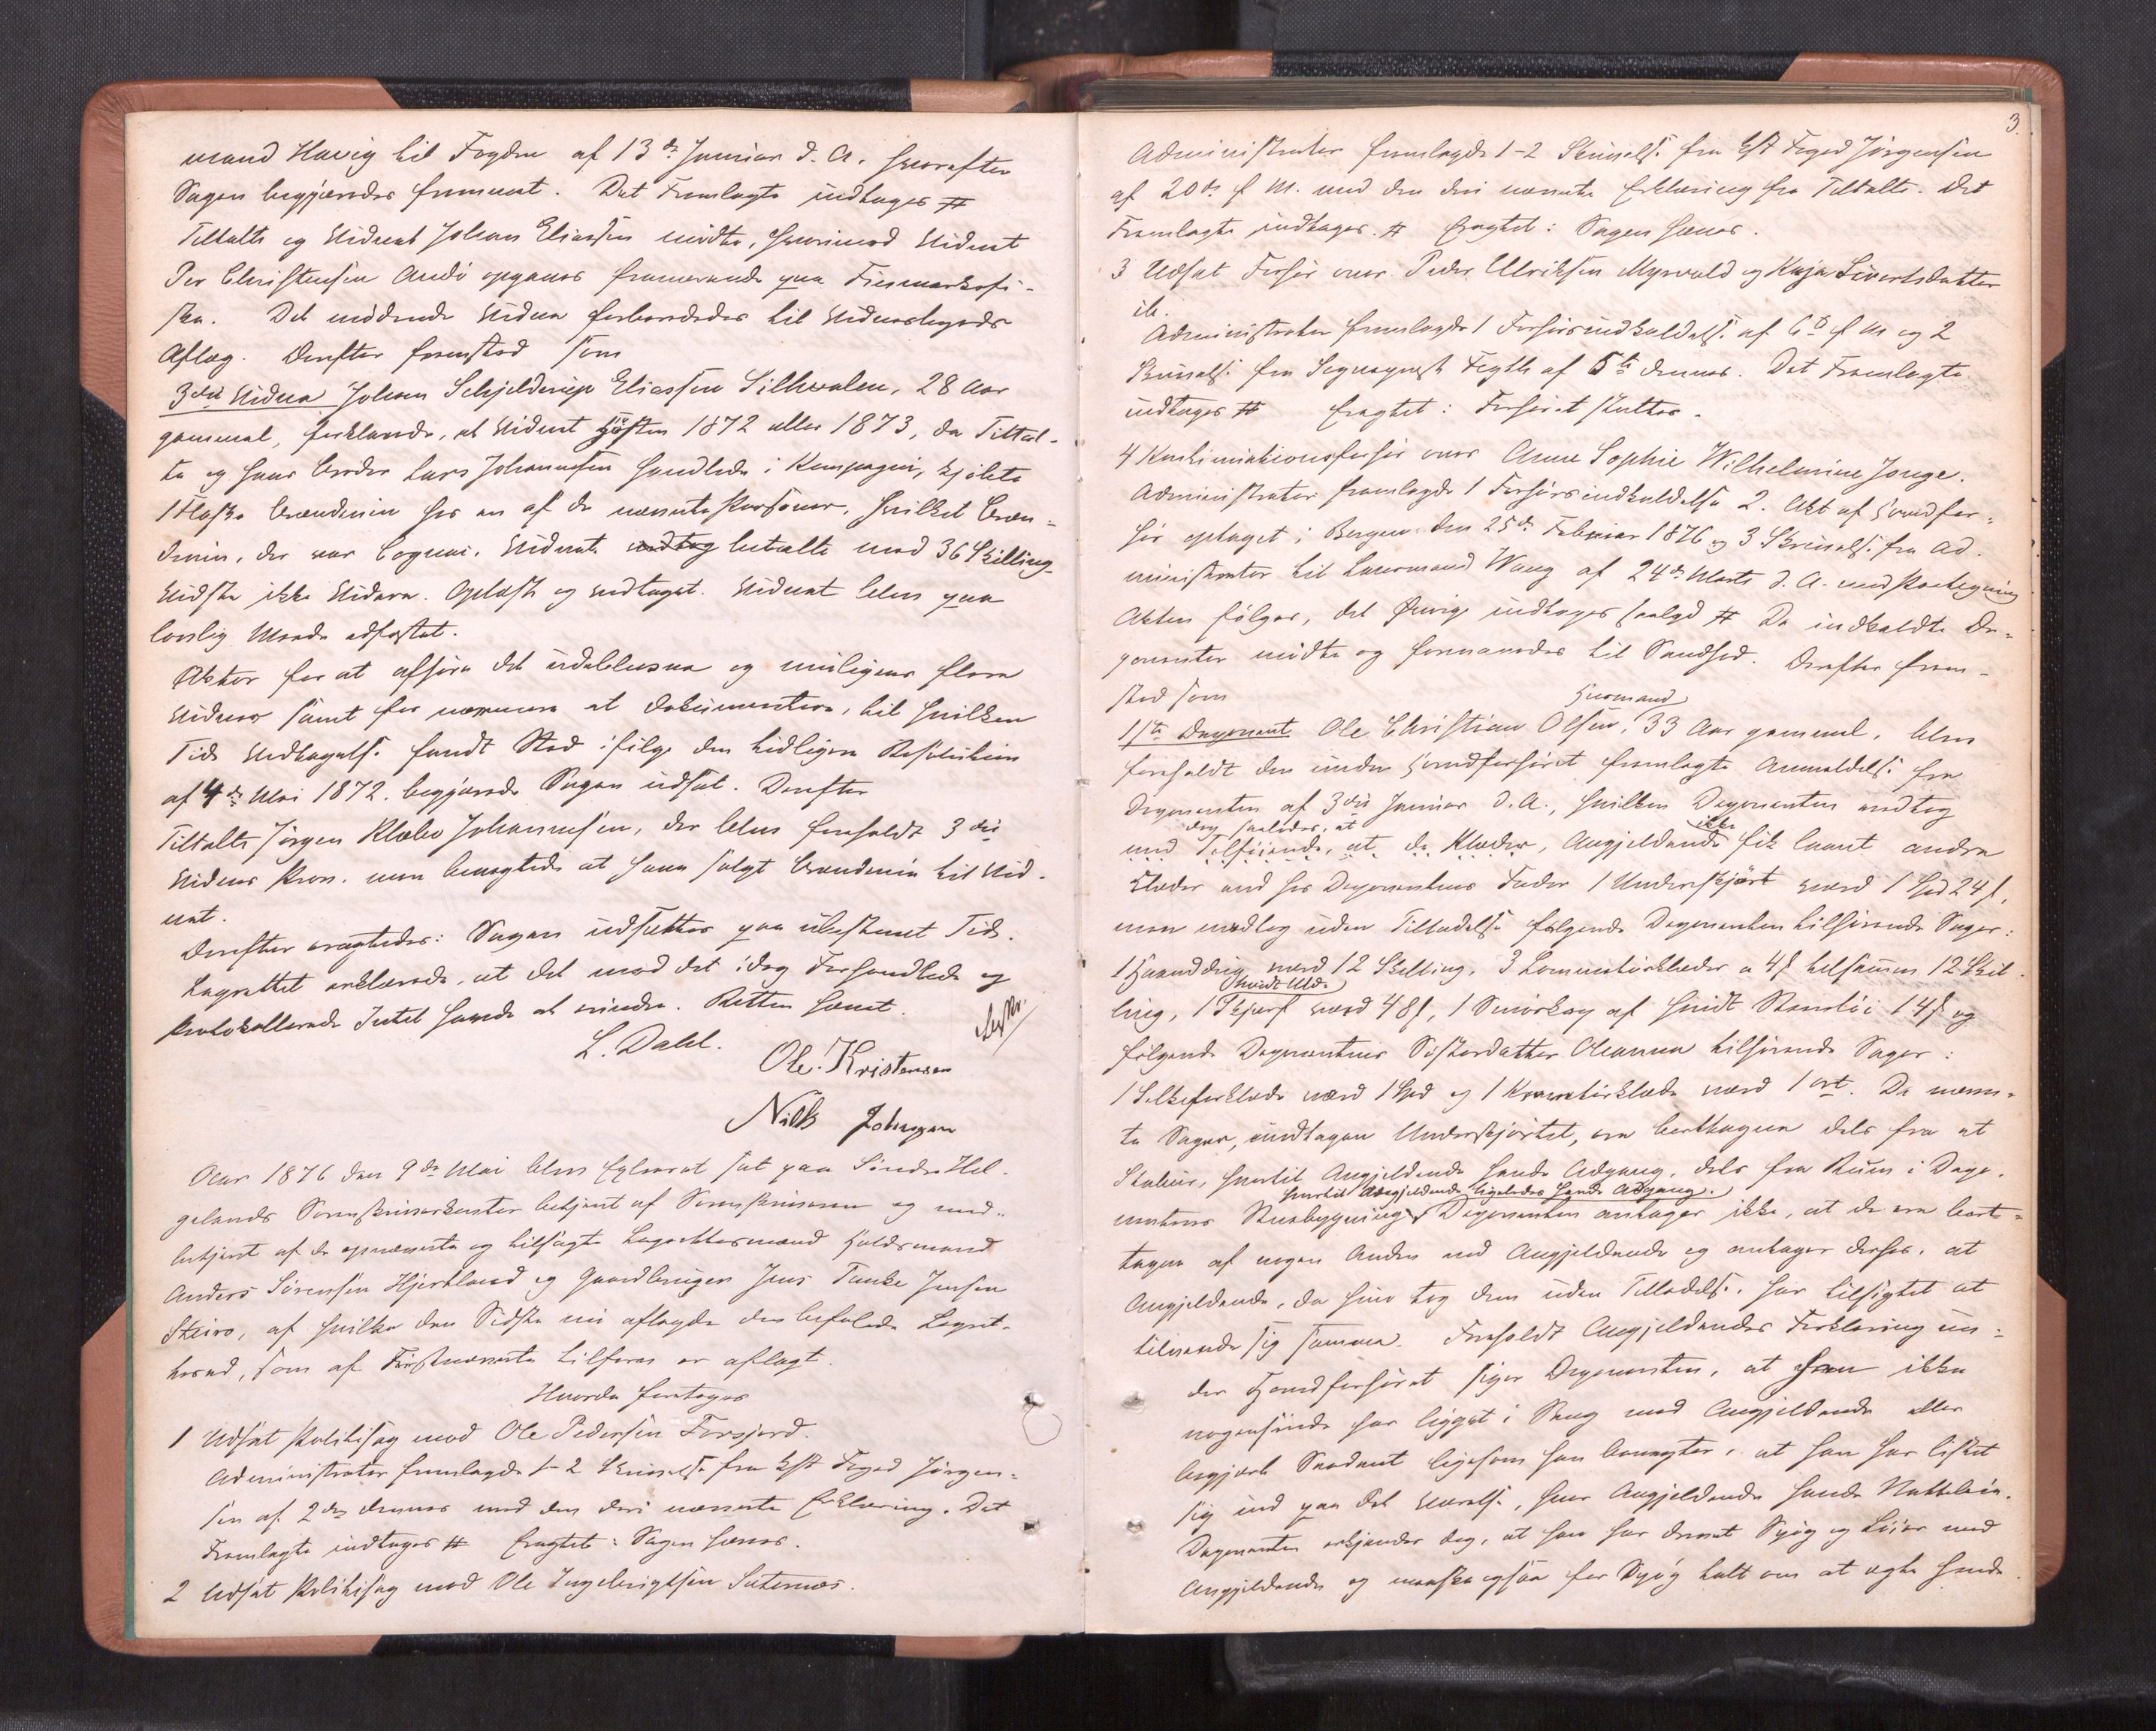 mand Havig til Fogden af 13de Januar d. A. hvorefter
Sagen begjæredes fremmet. Det Fremlagte indtages #
Tiltalte og Vidnet Johan Eliassen mødte, hvorimod Vidnet
Per Christensen Andö opgaves fraværende paa Finmarksfi-
ske. Det mødende Vidne formanedes til Vidnesbyrds
Aflæg. Derefter fremstod som
3die Vidne Johan Schjelderup Eliassen Silhvalen, 28 Aar
gammel, forklarede, at Vidnet Høsten 1872 eller 1873, da Tiltal-
te og hans Broder Lars Johannesen handlede i Kompagni, kjøbte
1 Flaske Brændeviin hos en af de nævnte Personer, hvilket Bræn-
deviin, der var Cognac, Vidnet modtog betalte med 36 Skilling
Vidste ikke Videre. Oplæst og vedtaget. Vidnet blev paa
lovlig Maade edfæstet.
Aktor for at afhøre det udeblevne og muligens flere
Vidner samt for nærmere at dokumentere, til hvilken
Tid Vedtagelse fandt Sted ifølge den tidligere Resolution
af 4de Mai 1872, begjærede Sagen udsat. Derefter
Tiltalte Jørgen Klæbo Johannesen, der blev foreholdt 3die
Vidnes Prov. men benegtede at have solgt Brændeviin til Vid-
net.
Derefter eragtedes: Sagen udsættes paa ubestemt Tid.
Lagrettet erklærede, at det mod det idag Forhandlede og
Protokollerede Intet havde at erindre. Retten hævet.
L. Dahl.
Ole. Kristensen
Nills Johansen
Aar 1876 den 9de Mai blev Extraret sat paa Søndre Hel-
gelands Sorenskriverkontor betjent af Sorenskriveren og med-
betjent af de opnævnte og tilsagte Lagrettesmænd Huusmand
Anders Sørensen Hjortland og Gaardbruger Jens Tanke Jensen
Steiro, af hvilke den Sidste nu aflagde den befalede Lagret-
tesed, som af Førstnævnte tilforn er aflagt.
Hvorda foretoges
1 Udsat Politisag mod Ole Pedersen Forsjord.
Administrator fremlagde 1-2 Skrivelse fra Kst Foged Jørgen-
sen af 2den dennes med den deri nævnte Erklæring. Det
Fremlagte indtages # Eragtet: Sagen hæves.
2 Udsat Politisag mod Ole Ingebrigtsen Sæternæs.
3.
Administrator fremlagde 1-2 Skrivelse fra Kst Foged Jørgensen
af 20de f. M. med den deri nævnte Erklæring fra Tiltalte. Det
Fremlagte indtages. # Eragtet: Sagen hæves.
3 Udsat Forhør over Peder Ulriksen Myrvold og Kaja Sivertsdatter
ib.
Administrator fremlagde 1 Forhørsindkaldelse af 6te f M og 2
Skrivelse fra Sognepræst Fegth af 5te dennes. Det Fremlagte
indtages # Eragtet: Forhøret sluttes.
4 Kontinuationsforhør over Anne Sophie Wilhelmine Jonge.
Administrator fremlagde 1 Forhørsindkaldelse 2. Akt af Hovedfor-
hør optaget i Bergen den 25de Februar 1876 og 3 Skrivelse fra Ad-
ministrator til Lensmand Wang af 24de Marts d. A. med Paategning
Akten følger, det Øvrige indtages saalyd # De indkaldte De-
ponenter mødte og formanedes til Sandhed. Derefter frem-
stod som
Huusmand
1ste Deponent Ole Christian Olsen, 33 Aar gammel, blev
foreholdt den under Hovedforhøret fremlagte Anmeldelse fra
Deponenten af 3die Januar d. A., hvilken Deponenten vedtog
dog saaledes, at ikke
med Tilføiende, at de Klæder, Angjeldende fik laant andre
Klæder end hos Deponentens Fader 1 Underskjørt værd 1 Spd 24 s,
men medtog uden Tilladelse følgende Deponenten tilhørende Sager:
1 Haanddug værd 12 Skilling, 3 Lommetørklæder a 4 s tilsammen 12 Skil-
hvidt Uld
ling, 1 Skjerf værd 48 s, 1 Smørkop af hvidt Stentøi 14 s og
følgende Deponentens Søsterdatter Oleanna tilhørende Sager:
1 Silkeforklæde værd 1 Spd og 1 Kommetørklæde værd 1 ort. De nævn-
te Sager, undtagen Underskjørtet, ere borttagne dels fra et
Stabur, hvortil Angjeldende havde Adgang, dels fra Rum i Depo-
hvortil Angjeldende ligeledes havde Adgang.
nentens Stuebygning. Deponenten antager ikke, at de ere bort-
tagne af nogen Anden end Angjeldende og antager derhos, at
Angjeldende, da hun tog dem uden Tilladelse, har tilsigtet at
tilvende sig samme. Foreholdt Angjeldendes Forklaring un-
der Hovedforhøret siger Deponenten, at han ikke
nogensinde har ligget i Seng med Angjeldende eller
begjært Saadant ligesom han benegter, at han har listet
sig ind paa det Værelse, hvor Angjeldende havde Natteleie.
Deponenten erkjender dog, at han har drevet Spøg og Løier med
Angjeldende og maaske ogsaa for Spøg talt om at ægte hende.